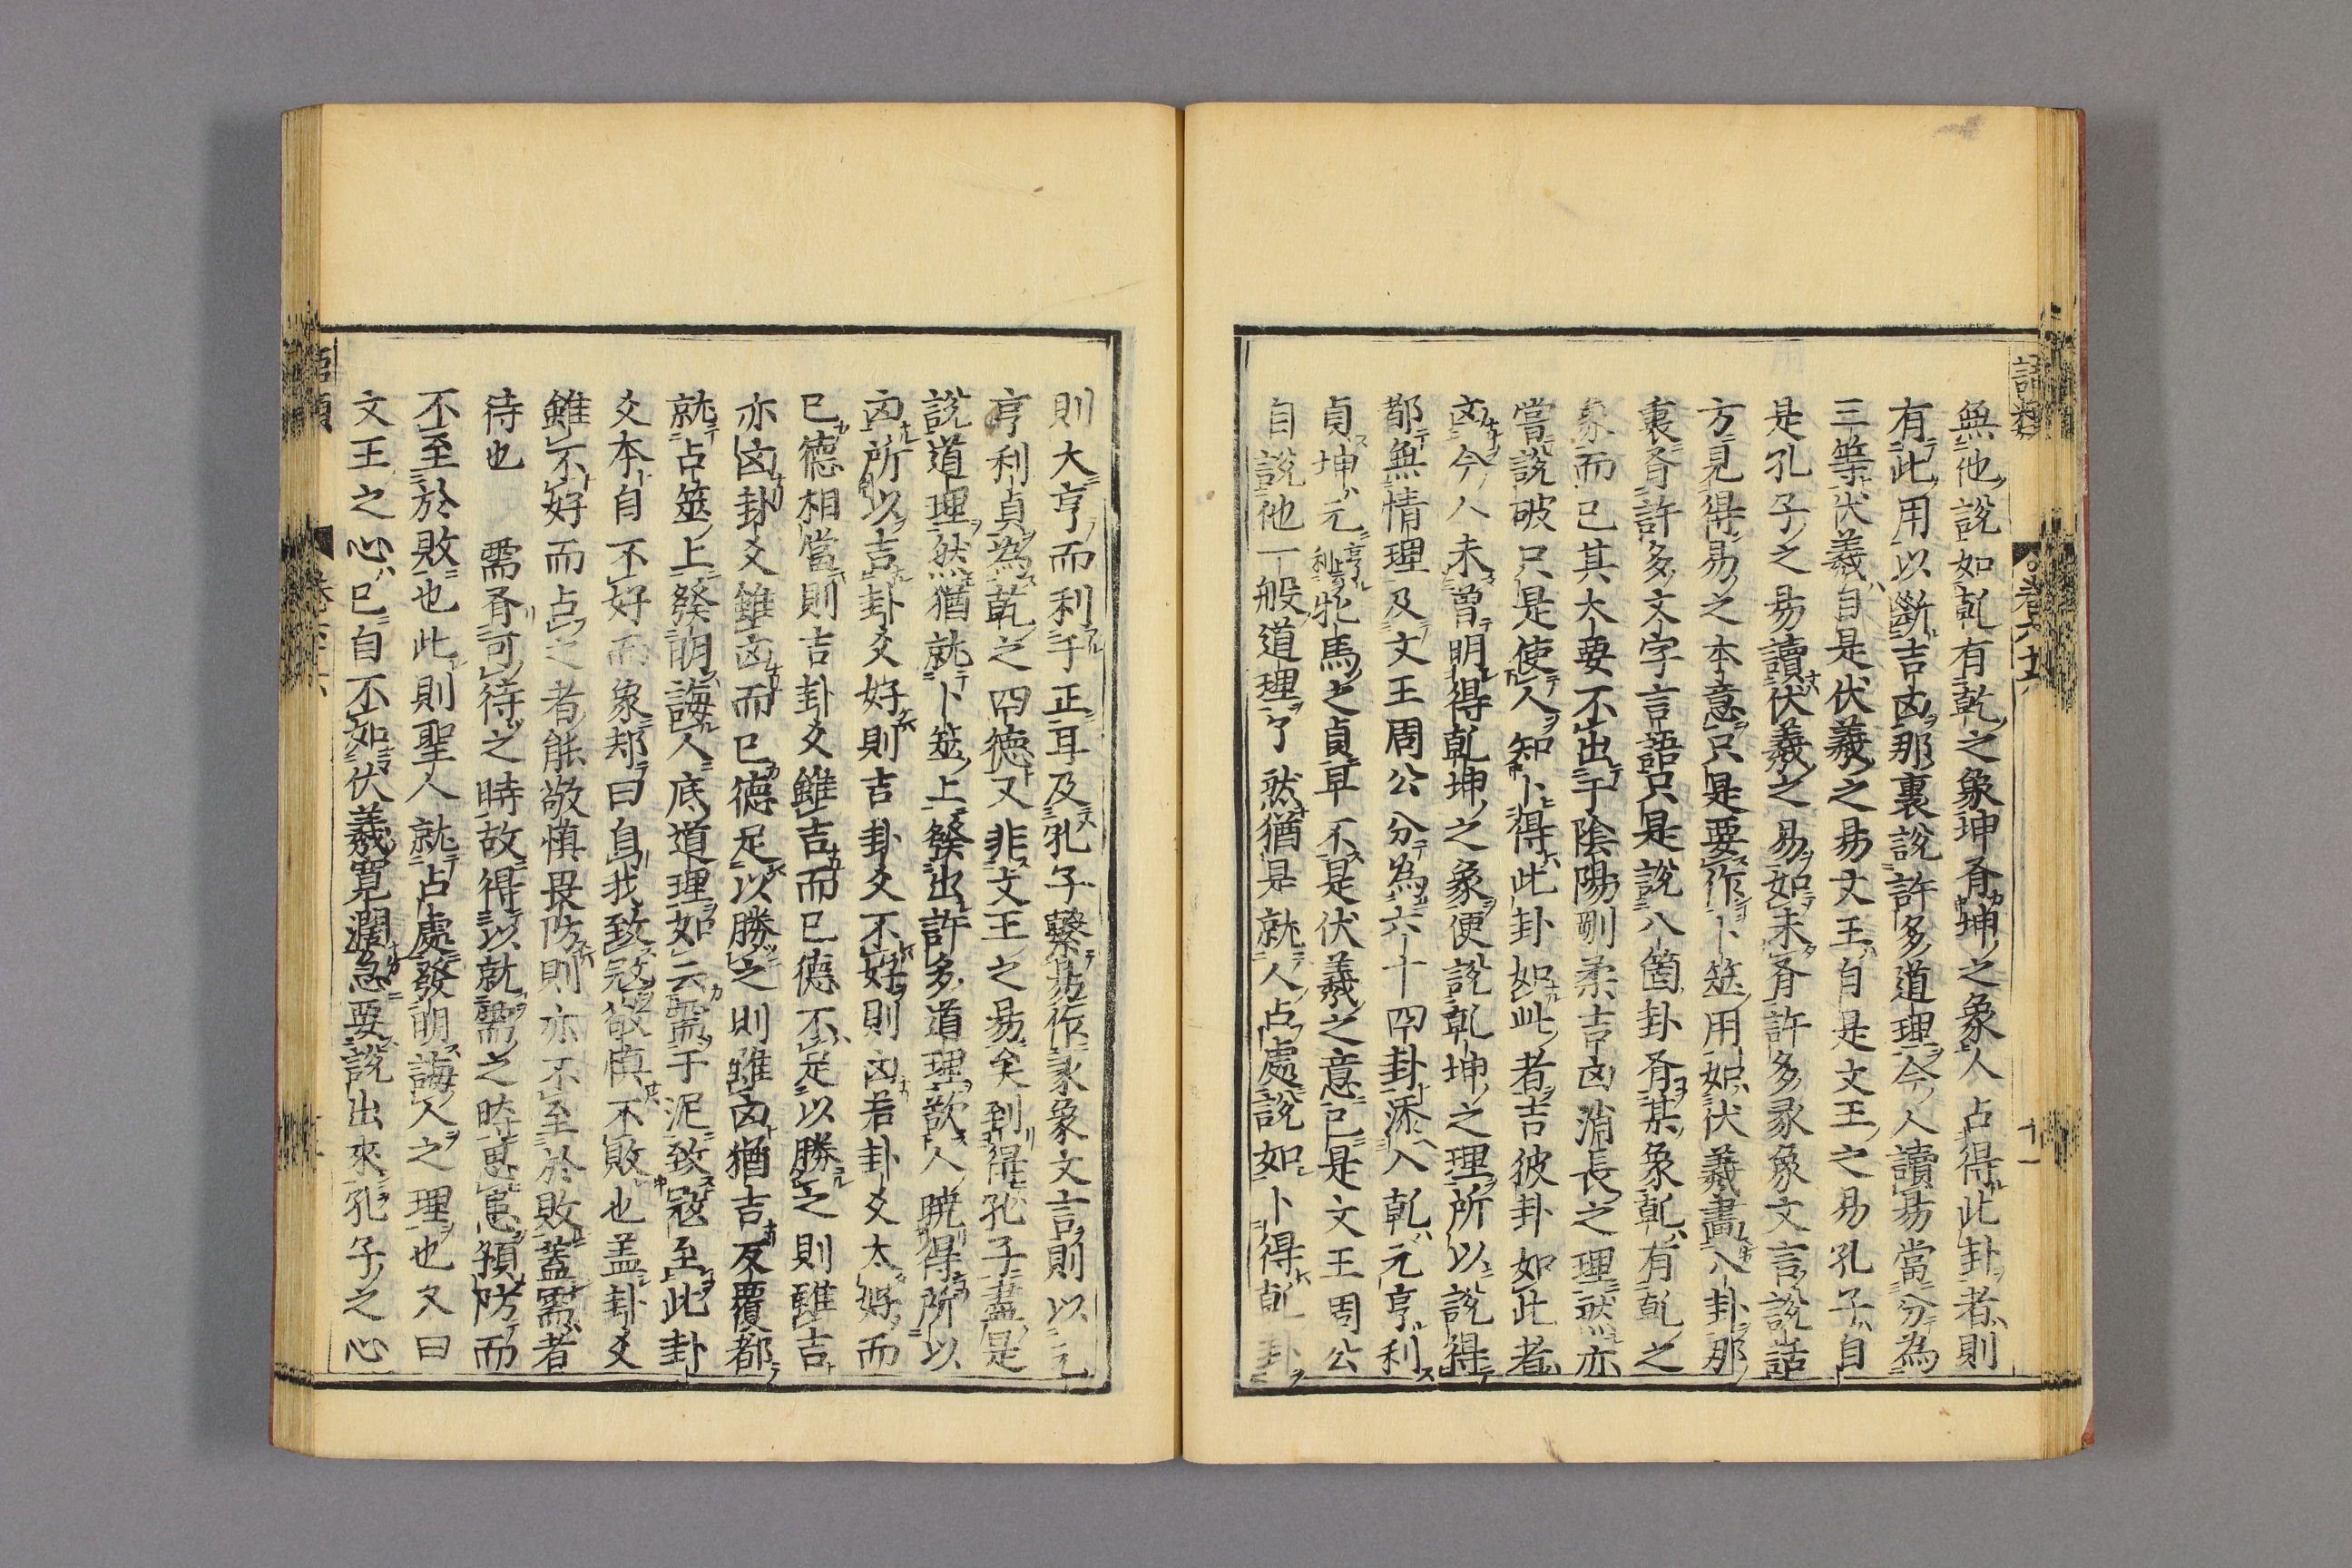 語類
卷六十六
十一
無他說如乹有乾之象坤有坤之象人占得此卦者則
有此用以斷吉凶那裏說許多道理今人讀易當分為
三等伏羲自是伏羲之易文王自是文王之易孔子自
是孔子之易讀伏羲之易如未有許多彖象文言說話
方見得易之本意只是要作卜筮用如伏羲畫八卦那
裏有許多文字言語只是說八箇卦有某象乹有乹之
象而已其大要不出于陰陽剛柔吉凶消長之理然亦
嘗說破只是使人知卜得此卦如此者吉彼卦如此者
凶今人未曾明得乹坤之象便說乹坤之理所以說得
都無情理及文王周公分為六十四卦添入乹元亨利
貞坤元亨利牝馬之貞早不是伏羲之意已是文王周公
自說他一般道理了然猶是就人占處說如卜得乹卦
則大亨而利于正耳及孔子繫易作彖象文言則以元
亨利貞為乾之四德又非文王之易矣到得孔子盡是
說道理然猶就卜筮上發出許多道理欲人曉得所以
凶所以吉卦爻好則吉卦爻不好則凶若卦爻大好而
已德相當則吉卦爻雖吉而已德不足以勝之則雖吉
亦凶卦爻雖凶而已德足以勝之則雖凶猶吉反覆都
就占筮上發明誨人底道理如云需于泥致寇至此卦
爻本自不好而象却曰自我致寇敬慎不敗也盖卦爻
雖不好而占之者能敬慎畏防則亦不至於敗蓋需者
待也　需有可待之時故得以就需之時思患預防而
不至於敗也此則聖人就占處發明誨人之理也又曰
文王之心已自不如伏羲寛濶急要說出來孔子之心
語類